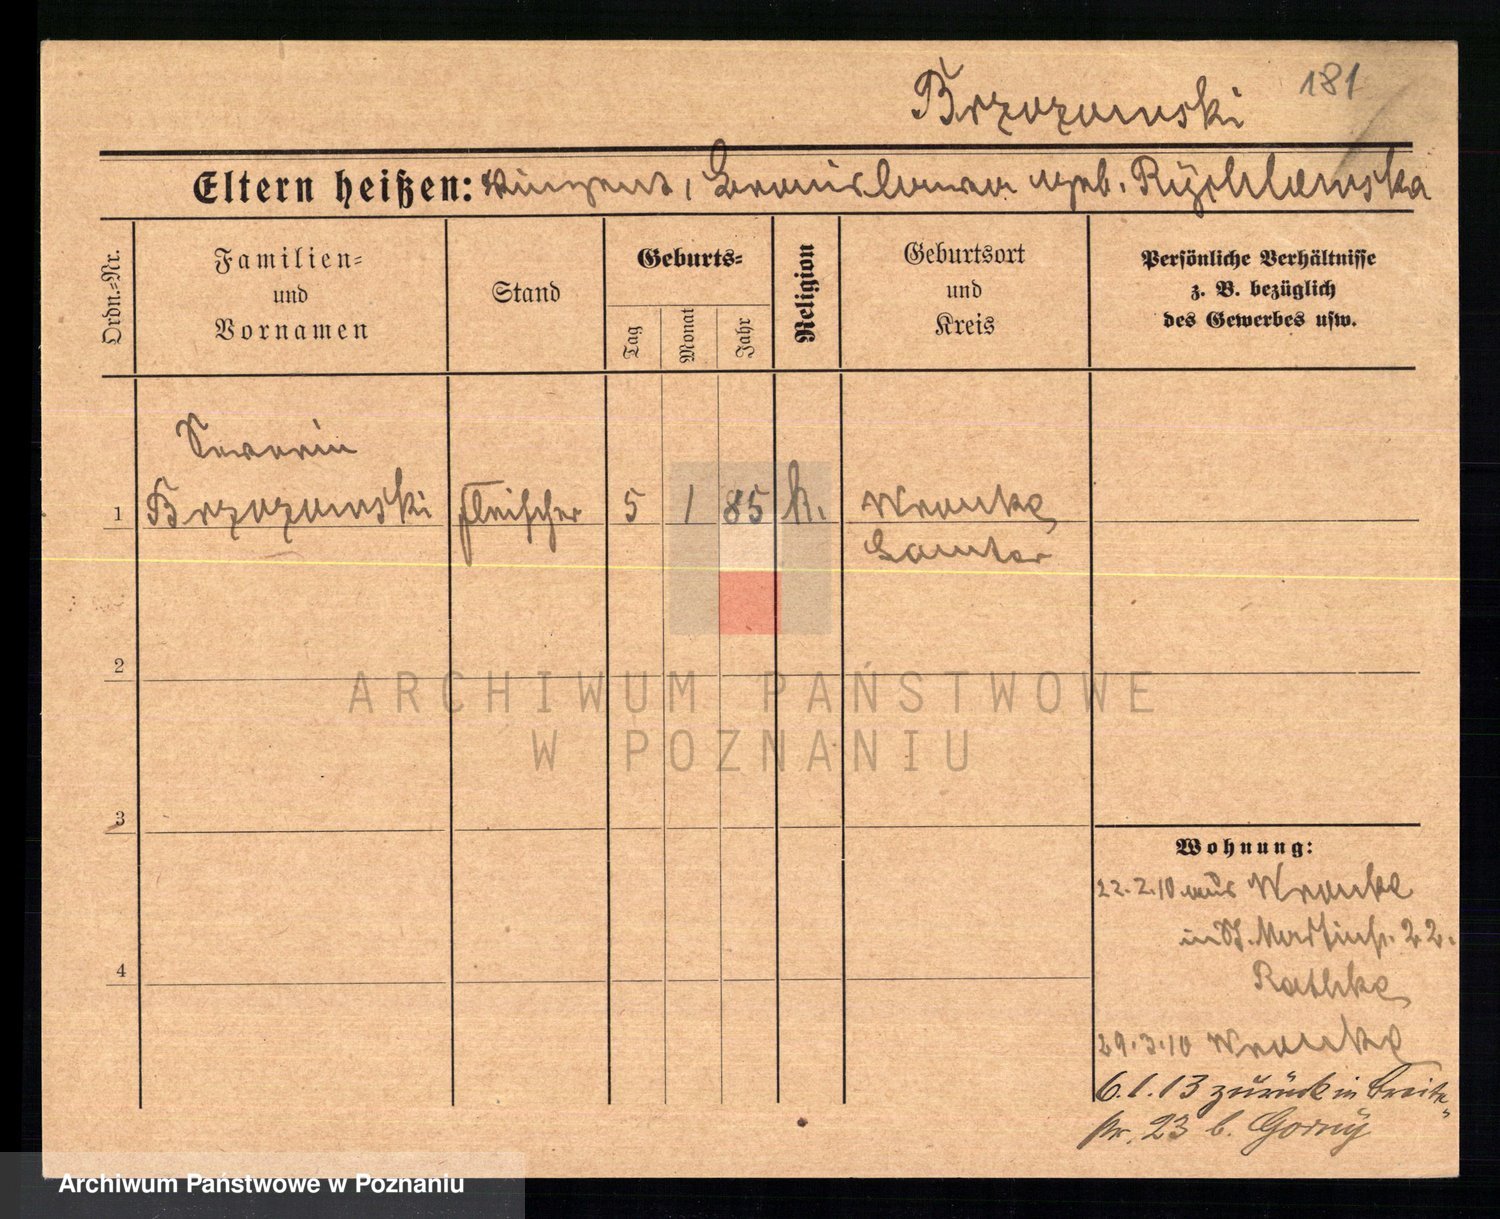 181
Brzozowski
Eltern heißen: Vinzent, Bronislawa geb. Rychlewska
Ordn.=Nr.
Familien=
und
Vornamen
Stand
Geburts=
Tag
Monat
Jahr
Religion
Geburtsort
und
Kreis
Persönliche Verhältnisse
z. B. bezüglich
des Gewerbes usw.
Severin
1 Brzozowski Fleischer 5 1 85 k. Wronke
Samter
2
3
4
Wohnung:
22.2.10 aus Wronke
in St. Martinstr. 22.
Rathke
29.3.10 Wronke
6.1.13 zurück in Breite
str. 23 b. Gorny
ARCHIWUM PAŃSTWOWE
W POZNANIU
Archiwum Państwowe w Poznaniu